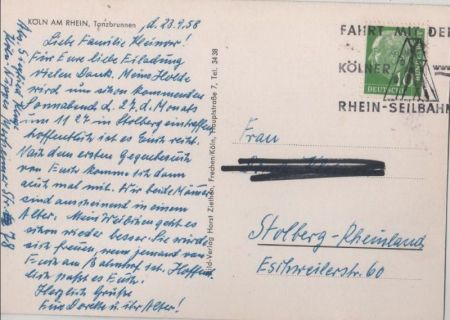 KÖLN AM RHEIN, Tanzbrunnen
, d. 23.9.58
Liebe Familie Kleiner!
Für Eure liebe Einladung
vielen Dank. Meine Holde
wird nun schon kommenden
Sonnabend d. 27. d. Monats
um 11 27 in Stolberg eintreffen
hoffentlich ist es Euch recht.
Nach dem ersten Gegenbesuch
von Euch komme ich dann
auch mal mit. Wir beide Männer
sind anscheinend in einem
Alter. Mein Weibchen geht es
schon wieder besser. Sie würde
sich freuen, wenn jemand von
Euch am Bahnhof ist. Hoffentl.
paßt es Euch.
Herzliche Grüße
Eure Dorette u. ihr Alter!
78
Bild-Verlag Horst Ziethen, Frechen/Köln, Hauptstraße 7, Tel. 3438
FAHRT MIT DER
KÖLNER
RHEIN-SEILBAHN
10
DEUTSCHE
Frau
Stolberg-Rheinland
Eschweilerstr. 60